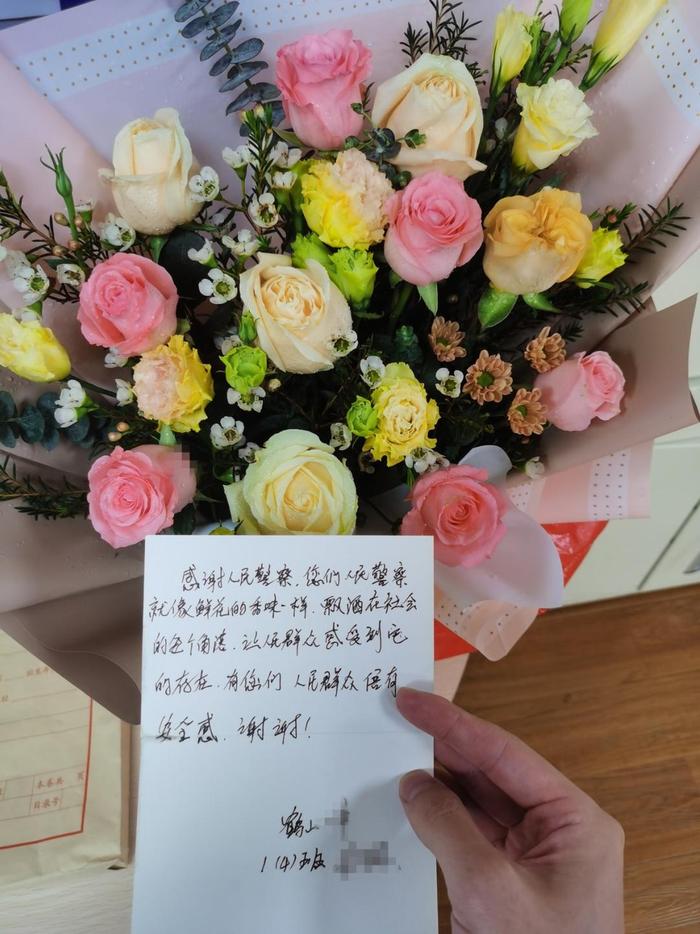 感谢人民警察，您们人民警察
就像鲜花的香味一样，飘洒在社会
的每个角落，让人民群众感受到它
的存在，有您们 人民群众倍有
安全感，谢谢！
鹤山
1（4）班
本卷共 页
目录号